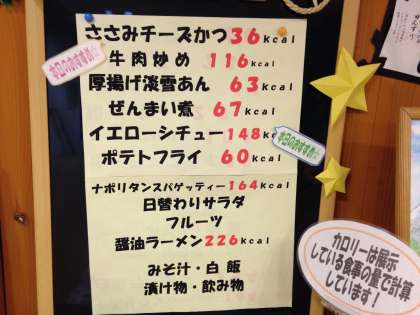 ささみチーズかつ36kcal
本日のおすすめ☆
牛肉炒め 116kcal
厚揚げ淡雪あん 63kcal
ぜんまい煮 67kcal
イエローシチュー148kcal
本日のおすすめ☆
ポテトフライ 60kcal
ナポリタンスパゲッティー164kcal
日替わりサラダ
フルーツ
醤油ラーメン226kcal
みそ汁・白 飯
漬け物・飲み物
カロリーは展示
している食事の量で計算
しています!